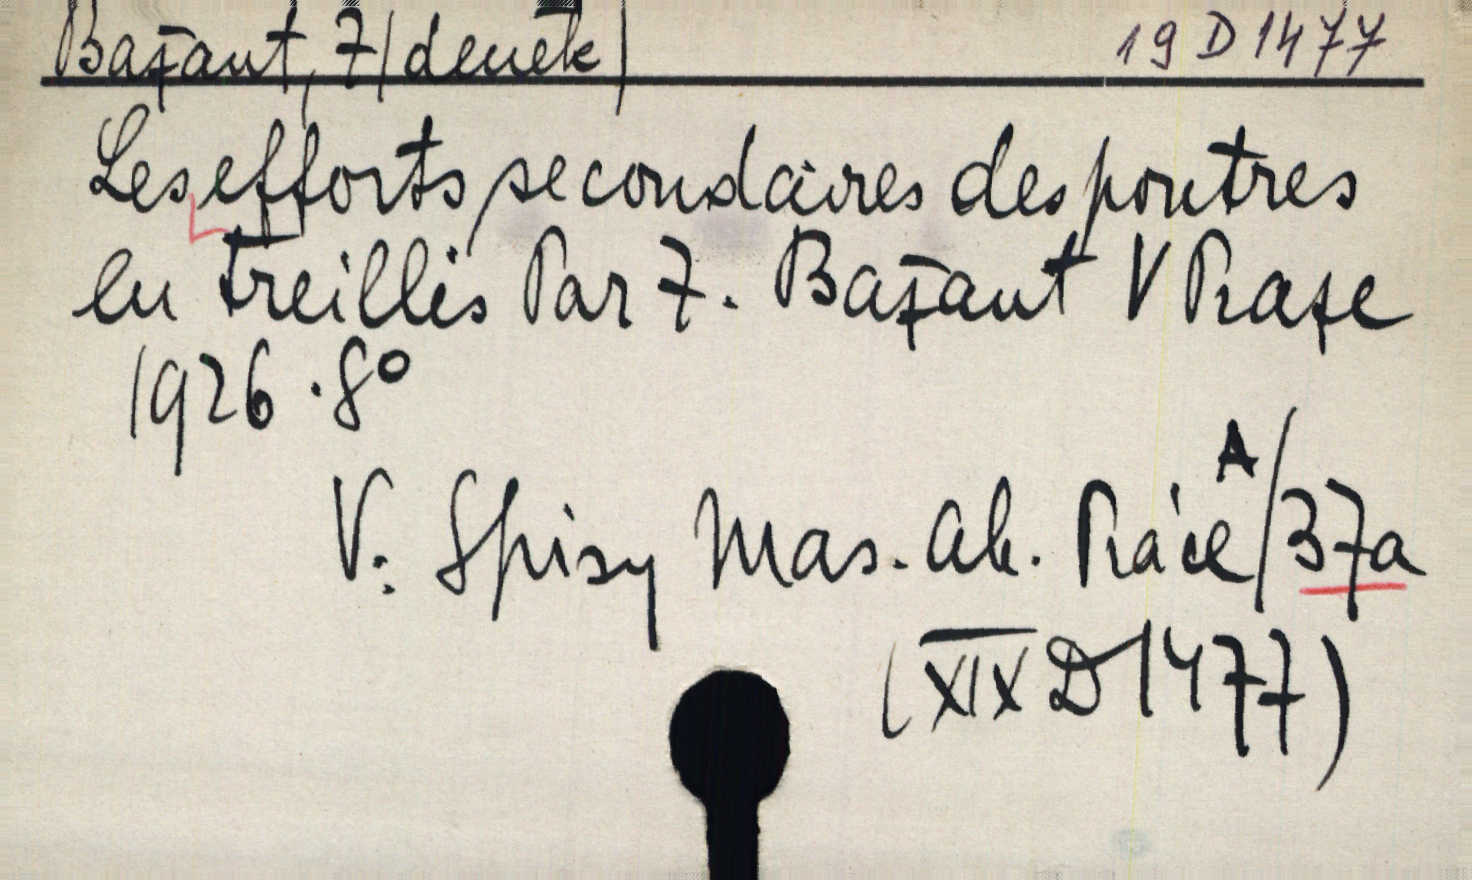 Bažant, Z/deněk/ 19 D 1477
Les efforts secondaires des poutres
en treillis Par Z. Bažant V Praze
1926. 8°
V: Spisy Mas. Ak. Práce A/37a
(XIX D 1477)